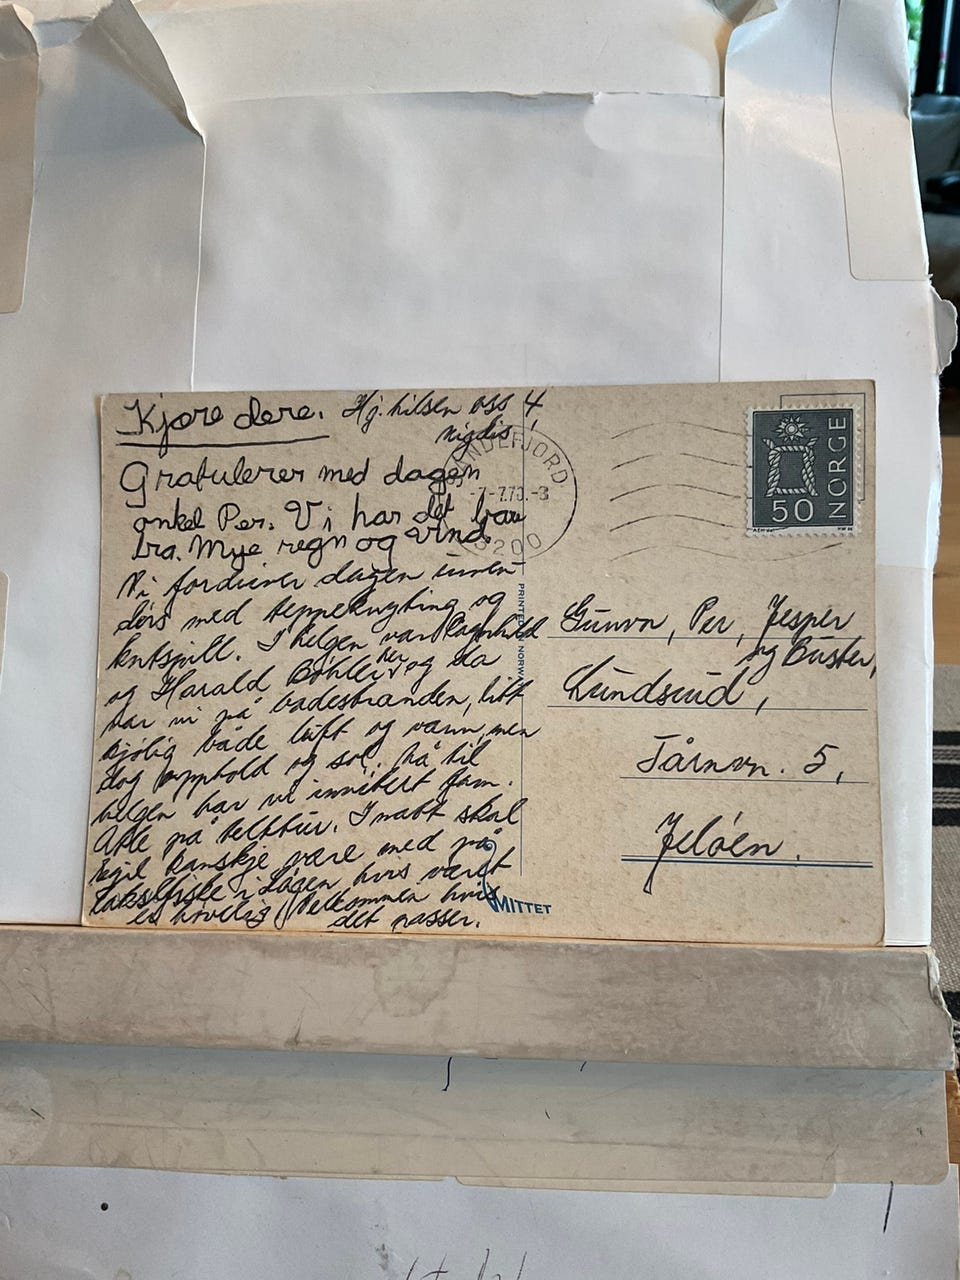 Kjære dere.
Hj. hilsen oss 4
Vigdis
Gratulerer med dagen
onkel Per. Vi har det bare
bra. Mye regn og vind.
Vi fordriver dagen innen-
dørs med teppeknyting og
kortspill. I helgen var Ragnhild
og Harald Bøhler her og da
var vi på badestranden, litt
kjølig både luft og vann, men
dog opphold og sol. Nå til
helgen har vi invitert fam.
Atle på telttur. I natt skal
Egil kanskje være med på
laksefiske i Lågen hvis været
er høvelig. Velkommen hvis
det passer.
SANDEFJORD
-7-7.70.-8
3200
NORGE
50
PRINTED IN NORWAY
Gunvor, Per, Jesper
og Buster,
Lundsrud,
Tårnvn. 5,
Jeløen.
MITTET